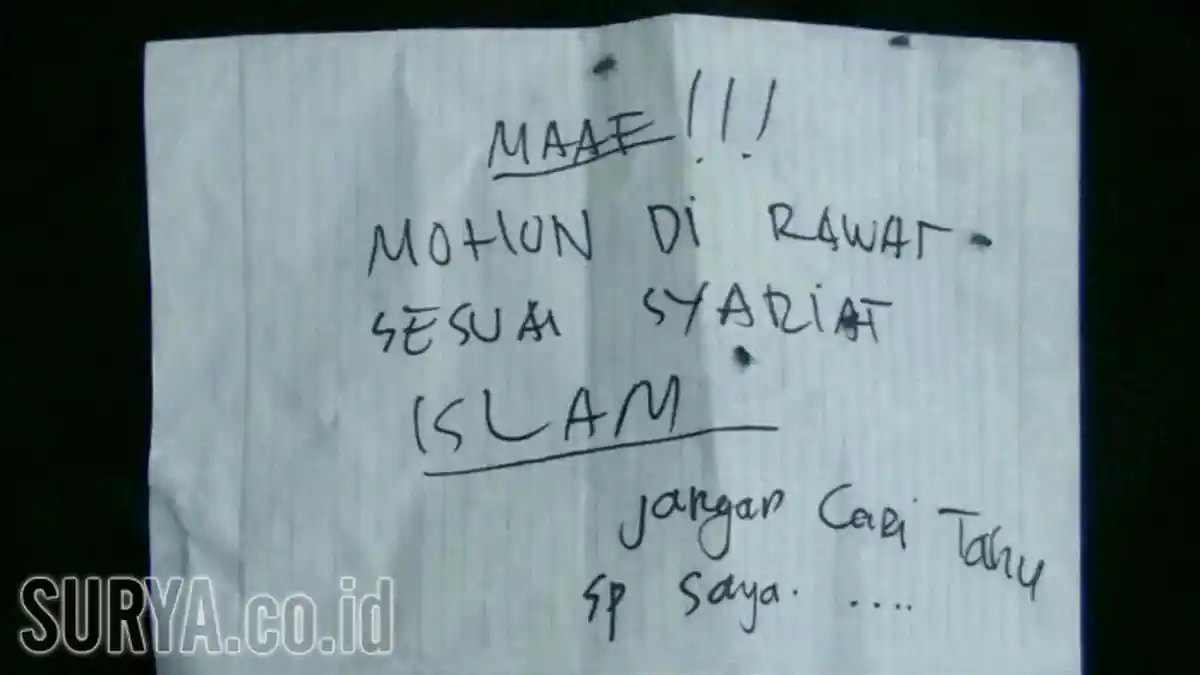 MAAF!!!
MOHON Di RAWAT
SESUAI SYARiAT
ISLAM
jangan Cari Tahu
sp saya. ....
SURYA.co.id